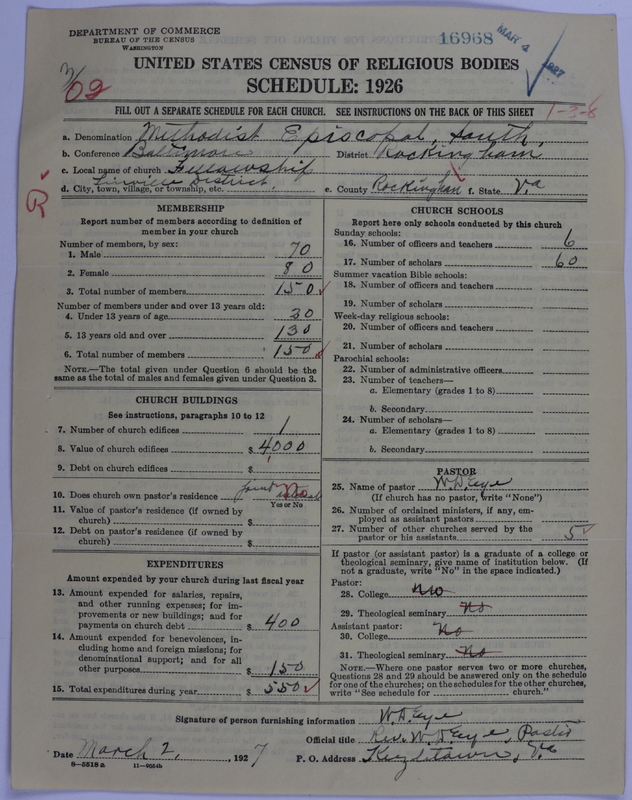 DEPARTMENT OF COMMERCE
BUREAU OF THE CENSUS
WASHINGTON
16968
MAR 4 1927
UNITED STATES CENSUS OF RELIGIOUS BODIES
SCHEDULE: 1926
02
FILL OUT A SEPARATE SCHEDULE FOR EACH CHURCH. SEE INSTRUCTIONS ON THE BACK OF THIS SHEET
1-3-8
a. Denomination Methodist Episcopal, South,
b. Conference Baltimore District Rockingham
c. Local name of church Fellowship
d. City, town, village, or township, etc. Linville District, e. County Rockingham f. State Va
R
MEMBERSHIP
Report number of members according to definition of member in your church
Number of members, by sex:
1. Male 70
2. Female 80
3. Total number of members 150
Number of members under and over 13 years old:
4. Under 13 years of age 20
5. 13 years old and over 130
6. Total number of members 150
NOTE.—The total given under Question 6 should be the same as the total of males and females given under Question 3.
CHURCH BUILDINGS
See instructions, paragraphs 10 to 12
7. Number of church edifices 1
8. Value of church edifices $ 4000
9. Debt on church edifices $
10. Does church own pastor's residence No
Yes or No
11. Value of pastor's residence (if owned by church) $
12. Debt on pastor's residence (if owned by church) $
EXPENDITURES
Amount expended by your church during last fiscal year
13. Amount expended for salaries, repairs, and other running expenses; for improvements or new buildings; and for payments on church debt $ 400
14. Amount expended for benevolences, including home and foreign missions; for denominational support; and for all other purposes $ 150
15. Total expenditures during year $ 550
CHURCH SCHOOLS
Report here only schools conducted by this church
Sunday schools:
16. Number of officers and teachers 6
17. Number of scholars 60
Summer vacation Bible schools:
18. Number of officers and teachers
19. Number of scholars
Week-day religious schools:
20. Number of officers and teachers
21. Number of scholars
Parochial schools:
22. Number of administrative officers
23. Number of teachers—
a. Elementary (grades 1 to 8)
b. Secondary
24. Number of scholars—
a. Elementary (grades 1 to 8)
b. Secondary
PASTOR
25. Name of pastor W. D. Eye
(If church has no pastor, write "None")
26. Number of ordained ministers, if any, employed as assistant pastors
27. Number of other churches served by the pastor or his assistants 5
If pastor (or assistant pastor) is a graduate of a college or theological seminary, give name of institution below. (If not a graduate, write "No" in the space indicated.)
Pastor:
28. College No
29. Theological seminary No
Assistant pastor:
30. College No
31. Theological seminary No
NOTE.—Where one pastor serves two or more churches, Questions 28 and 29 should be answered only on the schedule for one of the churches; on the schedules for the other churches, write "See schedule for church."
Signature of person furnishing information W. D. Eye
Official title Rev. W. D. Eye, Pastor
Date March 2, 1927 P. O. Address Keezletown, Va
8—5518 a 11—9054b